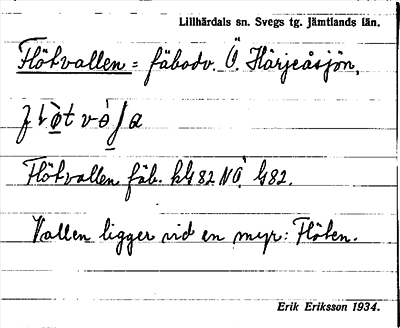 Lillhärdals sn. Svegs tg. Jämtlands län.
Flötvallen = fäbodv. Ö. Härjeåsjön,
Flötvallen fäb. kG 82 NÖ G82.
Vallen ligger vid en myr: Flöten.
Erik Eriksson 1934.